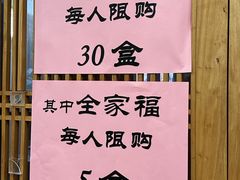 每人限购
30盒
其中全家福
每人限购
5盒